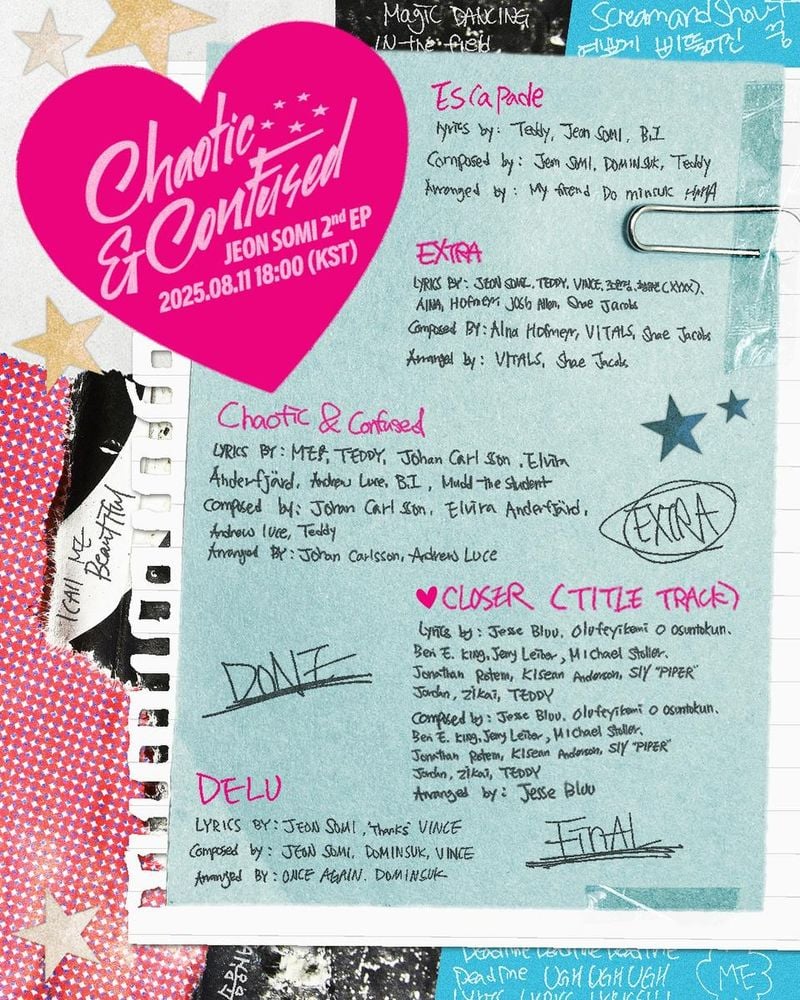 MAGIC DANCING
IN the field
ScreamandShout
예쁘게 비뚤어진
Chaotic
& Confused
JEON SOMI 2nd EP
2025.08.11 18:00 (KST)
Escapade
Lyrics by: Teddy, Jeon SOMI, B.I
Composed by: Jeon SOMI, DOMINSUK, Teddy
Arranged by: My friend Do minsuk HAHA
EXTRA
LYRICS BY: JEON SOMI, TEDDY, VINCE, (XYXX),
AINA, Hofmeyr, Josh Allen, Shae Jacobs
Composed BY: AIna Hofmeyr, VITALS, Shae Jacobs
Arranged by: VITALS, Shae Jacobs
Chaotic & Confused
LYRICS BY: ME!, TEDDY, Johan Carlsson, Elvira
Anderfjärd, Andrew Luce, B.I, Mudd the student
Composed by: Johan Carlsson, Elvira Anderfjärd,
Andrew luce, Teddy
Arranged BY: Johan Carlsson, Andrew Luce
EXTRA
I CAll ME
Beautiful
♥ CLOSER (TITLE TRACK)
Lyrics by: Jesse Bluu, Olufeyikemi O Osuntokun,
Ben E. King, Jerry Leiber, Michael Stoller,
Jonathan Rotem, Kisean Anderson, Sly "PIPER"
Jordan, Zikai, TEDDY
Composed by: Jesse Bluu, Olufeyikemi O Osuntokun,
Ben E. King, Jerry Leiber, Michael Stoller,
Jonathan Rotem, Kisean Anderson, Sly "PIPER"
Jordan, Zikai, TEDDY
Arranged by: Jesse Bluu
DONE
DELU
LYRICS BY: JEON SOMI, 'Thanks' VINCE
Composed by: JEON SOMI, DOMINSUK, VINCE
Arranged BY: ONCE AGAIN. DOMINSUK
FinAL
Deadline Deadline Deadline
Deadline UGH UGH UGH
ME